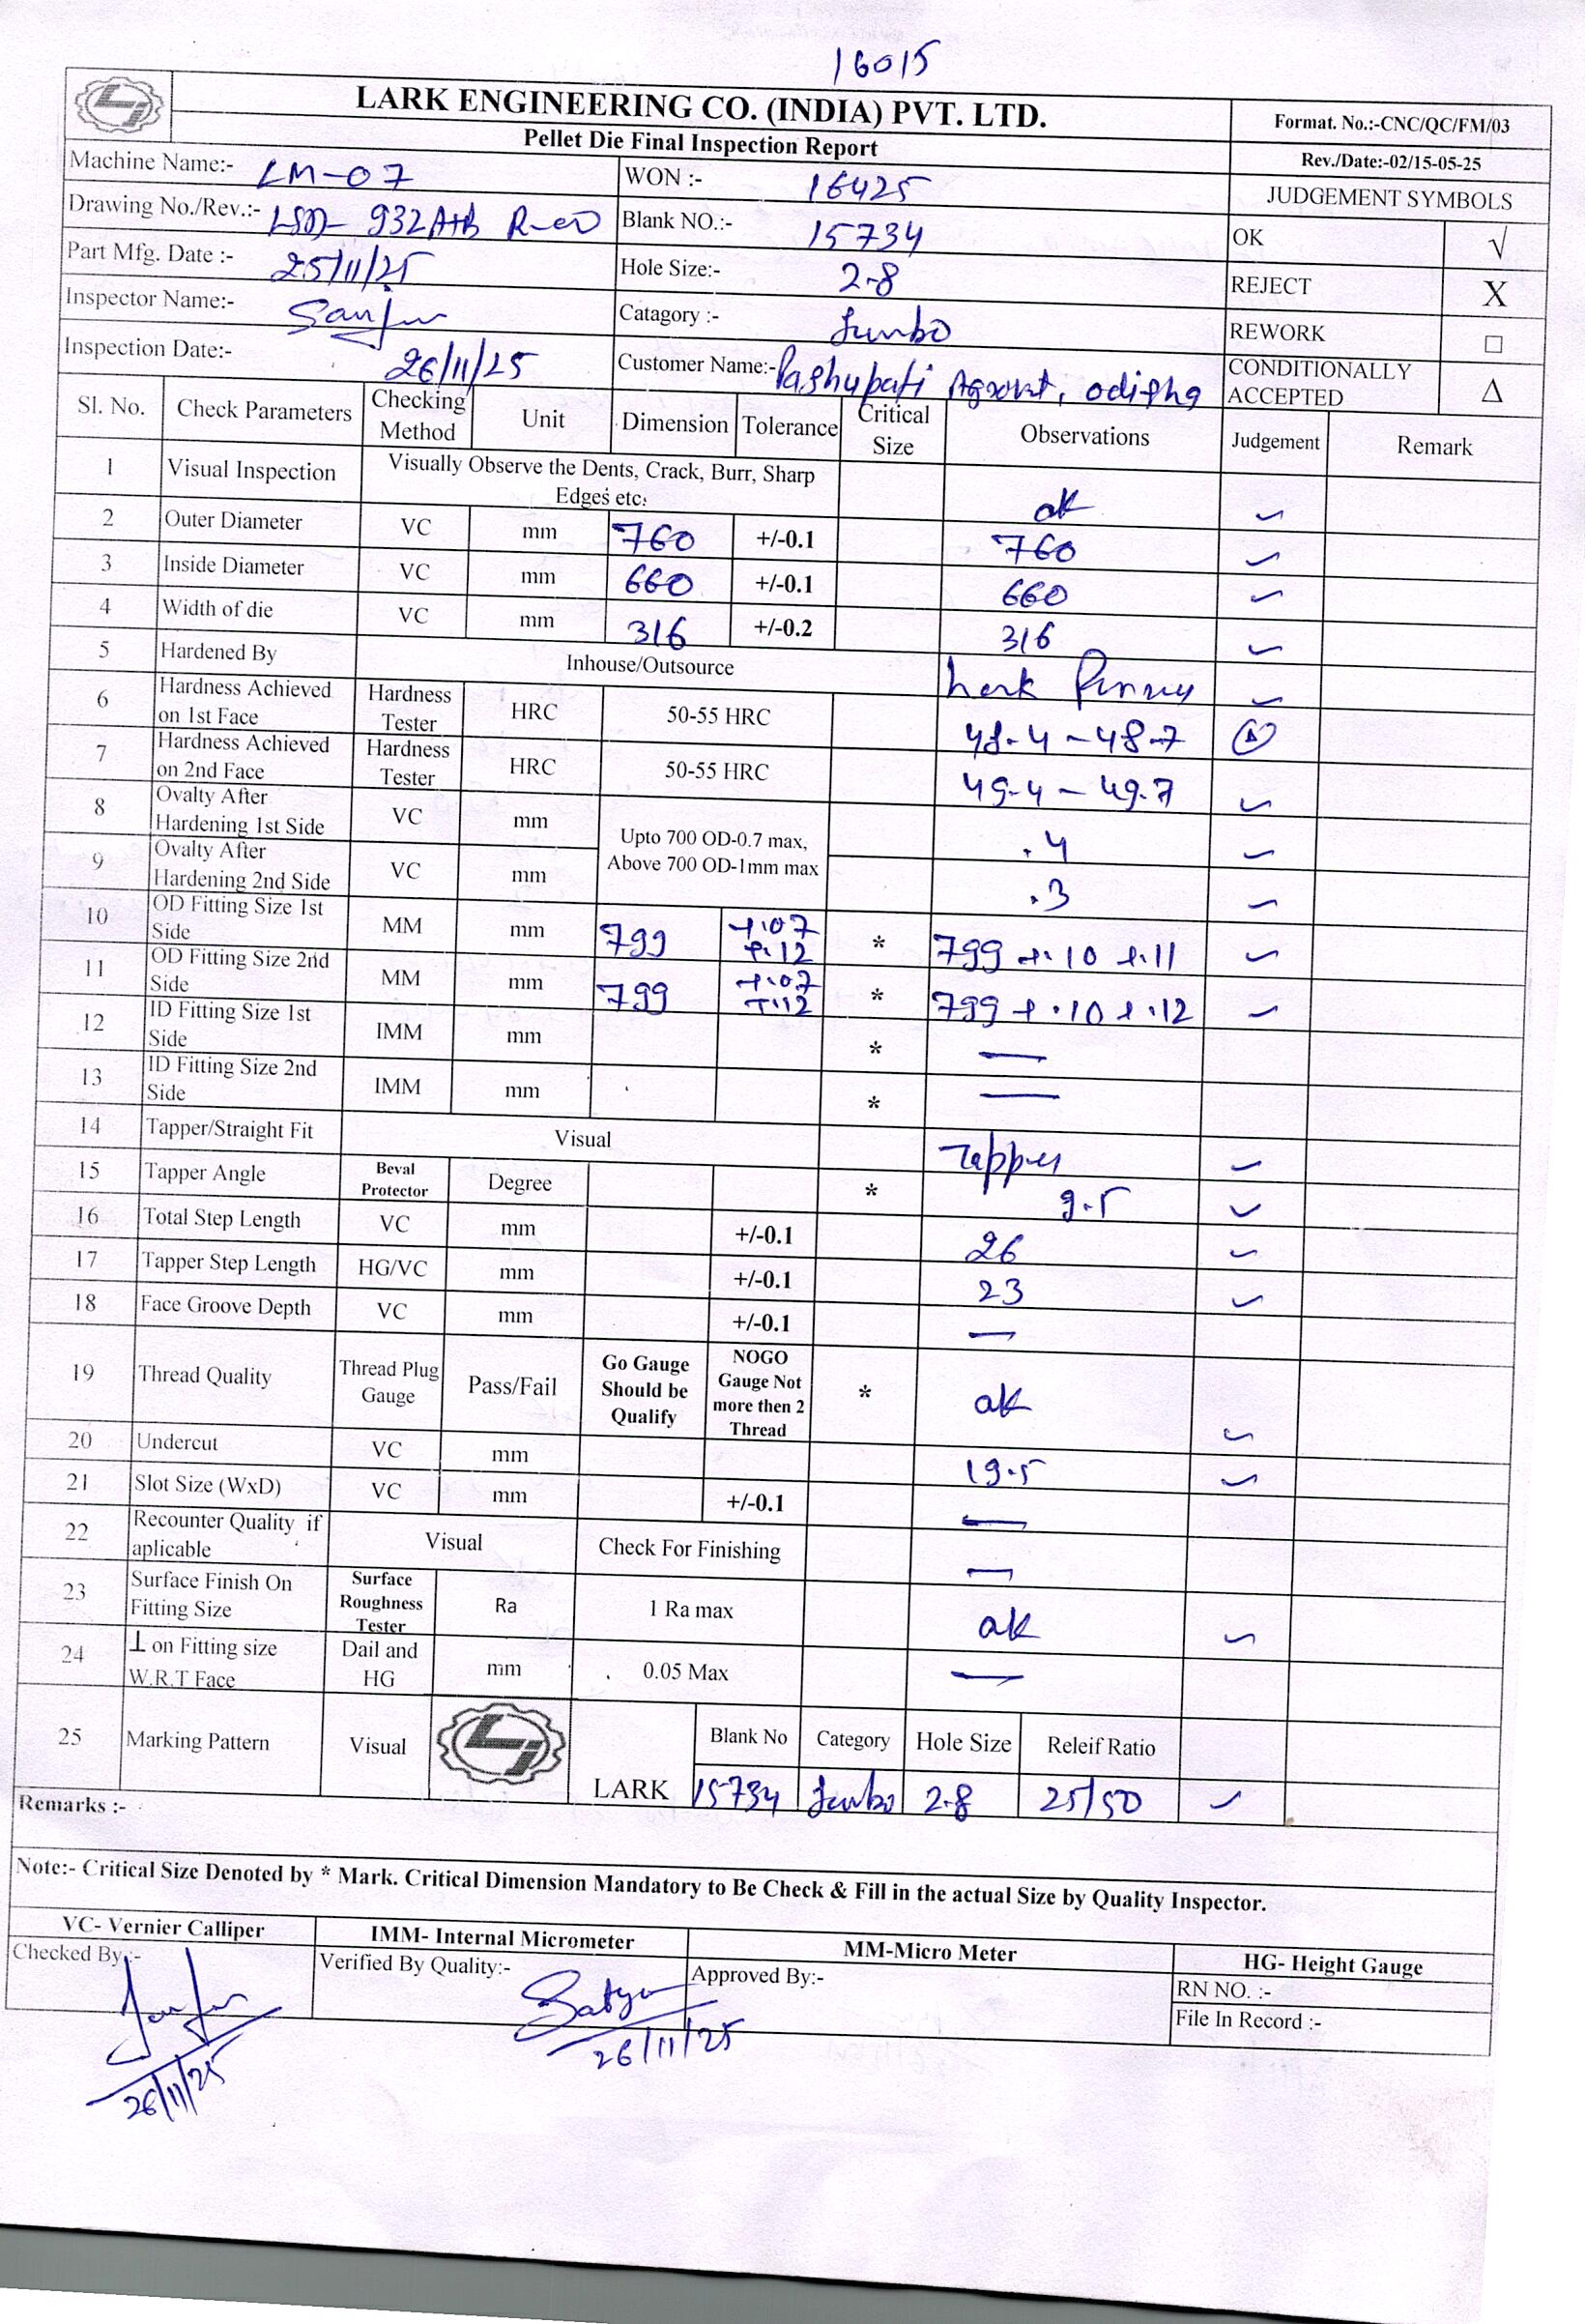 16015
LARK ENGINEERING CO. (INDIA) PVT. LTD.
Pellet Die Final Inspection Report
Format. No.:-CNC/QC/FM/03
Rev./Date:-02/15-05-25
JUDGEMENT SYMBOLS
Machine Name:- LM-07 WON :- 16425
Drawing No./Rev.:- 932A+B Blank NO.:- 15734 OK √
Part Mfg. Date :- 25/11/25 Hole Size:- 2.8 REJECT X
Inspector Name:- Catagory :- Jumbo REWORK □
Inspection Date:- 26/11/25 Customer Name:- Pashupati CONDITIONALLY ACCEPTED Δ
Sl. No. Check Parameters Checking Method Unit Dimension Tolerance Critical Size Observations Judgement Remark
1 Visual Inspection Visually Observe the Dents, Crack, Burr, Sharp Edges etc. ok
2 Outer Diameter VC mm 760 +/-0.1 760
3 Inside Diameter VC mm 660 +/-0.1 660
4 Width of die VC mm 316 +/-0.2 316
5 Hardened By Inhouse/Outsource
6 Hardness Achieved on 1st Face Hardness Tester HRC 50-55 HRC 48.4 - 48.7
7 Hardness Achieved on 2nd Face Hardness Tester HRC 50-55 HRC 49.4 - 49.7
8 Ovalty After Hardening 1st Side VC mm Upto 700 OD-0.7 max, Above 700 OD-1mm max .4
9 Ovalty After Hardening 2nd Side VC mm .3
10 OD Fitting Size 1st Side MM mm 799 +.07 +.12 * 799 +.10 +.11
11 OD Fitting Size 2nd Side MM mm 799 +.07 +.12 * 799 +.10 +.12
12 ID Fitting Size 1st Side IMM mm * —
13 ID Fitting Size 2nd Side IMM mm * —
14 Tapper/Straight Fit Visual Tapper
15 Tapper Angle Beval Protector Degree * 9.5
16 Total Step Length VC mm +/-0.1 26
17 Tapper Step Length HG/VC mm +/-0.1 23
18 Face Groove Depth VC mm +/-0.1 —
19 Thread Quality Thread Plug Gauge Pass/Fail Go Gauge Should be Qualify NOGO Gauge Not more then 2 Thread * ok
20 Undercut VC mm 19.5
21 Slot Size (WxD) VC mm +/-0.1 —
22 Recounter Quality if aplicable Visual Check For Finishing —
23 Surface Finish On Fitting Size Surface Roughness Tester Ra 1 Ra max ok
24 ⊥ on Fitting size W.R.T Face Dail and HG mm 0.05 Max —
25 Marking Pattern Visual LARK Blank No Category Hole Size Releif Ratio
15734 Jumbo 2.8 25/50
Remarks :-
Note:- Critical Size Denoted by * Mark. Critical Dimension Mandatory to Be Check & Fill in the actual Size by Quality Inspector.
VC- Vernier Calliper IMM- Internal Micrometer MM-Micro Meter HG- Height Gauge
Checked By:- Verified By Quality:- Satya Approved By:- RN NO. :-
File In Record :-
26/11/25 26/11/25